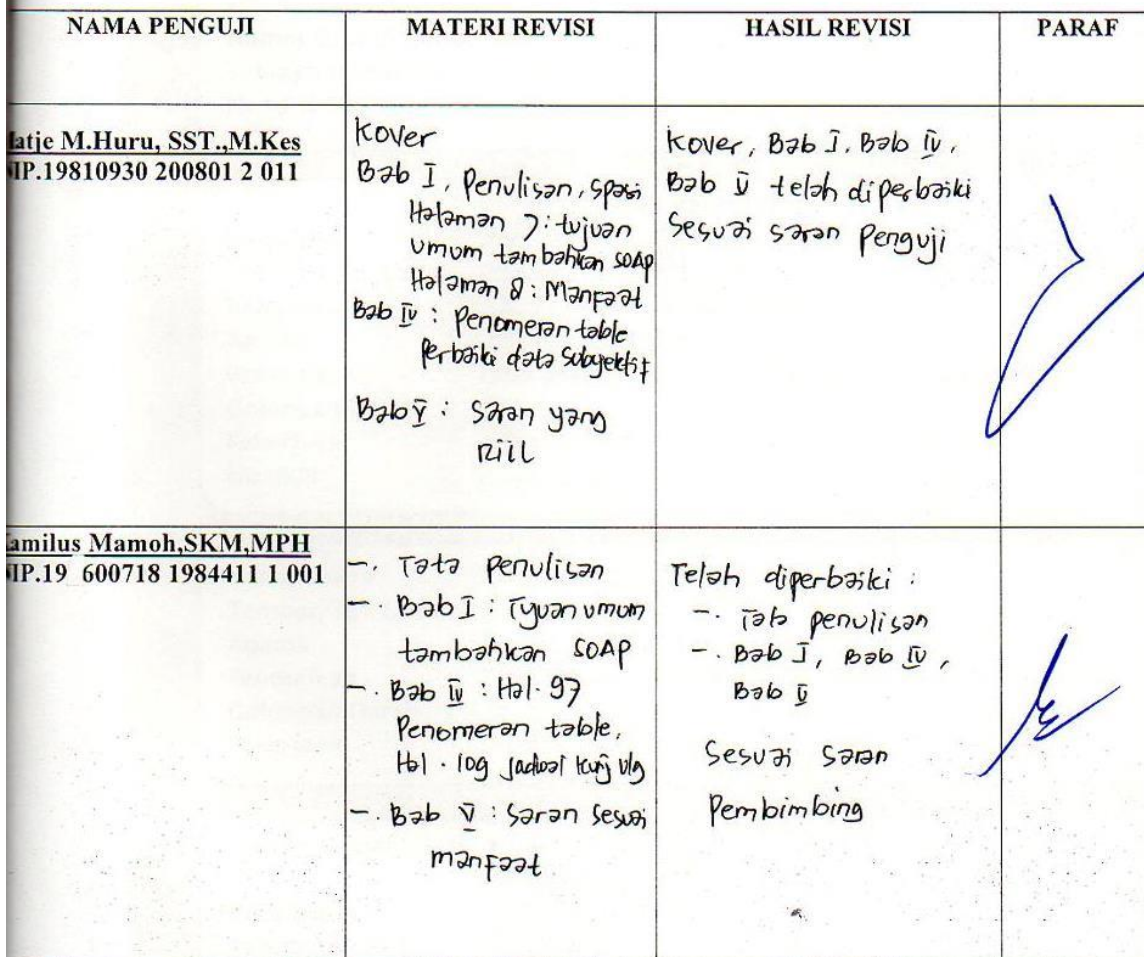 NAMA PENGUJI MATERI REVISI HASIL REVISI PARAF
atje M.Huru, SST.,M.Kes
NIP.19810930 200801 2 011
Kover
Bab I, Penulisan, spasi
Halaman 7: tujuan
umum tambahkan SOAP
Halaman 8: Manfaat
Bab IV : Penomeran table
Perbaiki data Subyektif
Bab V : Saran yang
riil
Kover, Bab I, Bab IV,
Bab V telah diperbaiki
Sesuai saran Penguji
amilus Mamoh,SKM,MPH
NIP.19 600718 1984411 1 001
-. Tata penulisan
-. Bab I : Tujuan umum
tambahkan SOAP
-. Bab IV : Hal. 97
Penomeran table,
Hal. 109 Jadwal kunj ulg
-. Bab V : Saran sesuai
manfaat
Telah diperbaiki :
-. Tata penulisan
-. Bab I, Bab IV,
Bab V
Sesuai Saran
Pembimbing